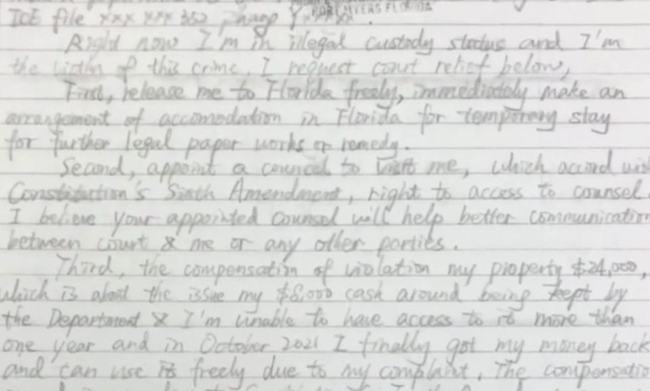 ICE file xxx xxx 352,
FORT MYERS FLORIDA
Right now I'm in illegal custody status and I'm
the victim of this crime. I request court relief below,
First, release me to Florida freely, immediately make an
arrangement of accomodation in Florida for temporary stay
for further legal paper works or remedy.
Second, appoint a councel to visit me, which accord
Constitution's Sixth Amendment, right to access to counsel.
I believe your appointed counsel will help better communication
between court & me or any other parties.
Third, the compensation of violation my property $24,000,
which is about the issue my $8,000 cash around being kept by
the Department & I'm unable to have access to it more than
one year and in October 2021 I finally got my money back
and can use it freely due to my complaint. The compensatio